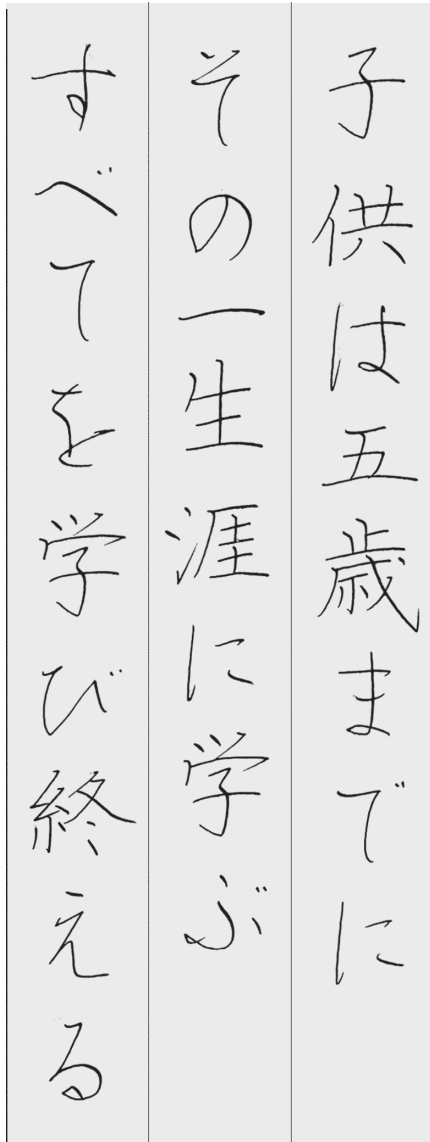 子供は五歳までに
その一生涯に学ぶ
すべてを学び終える